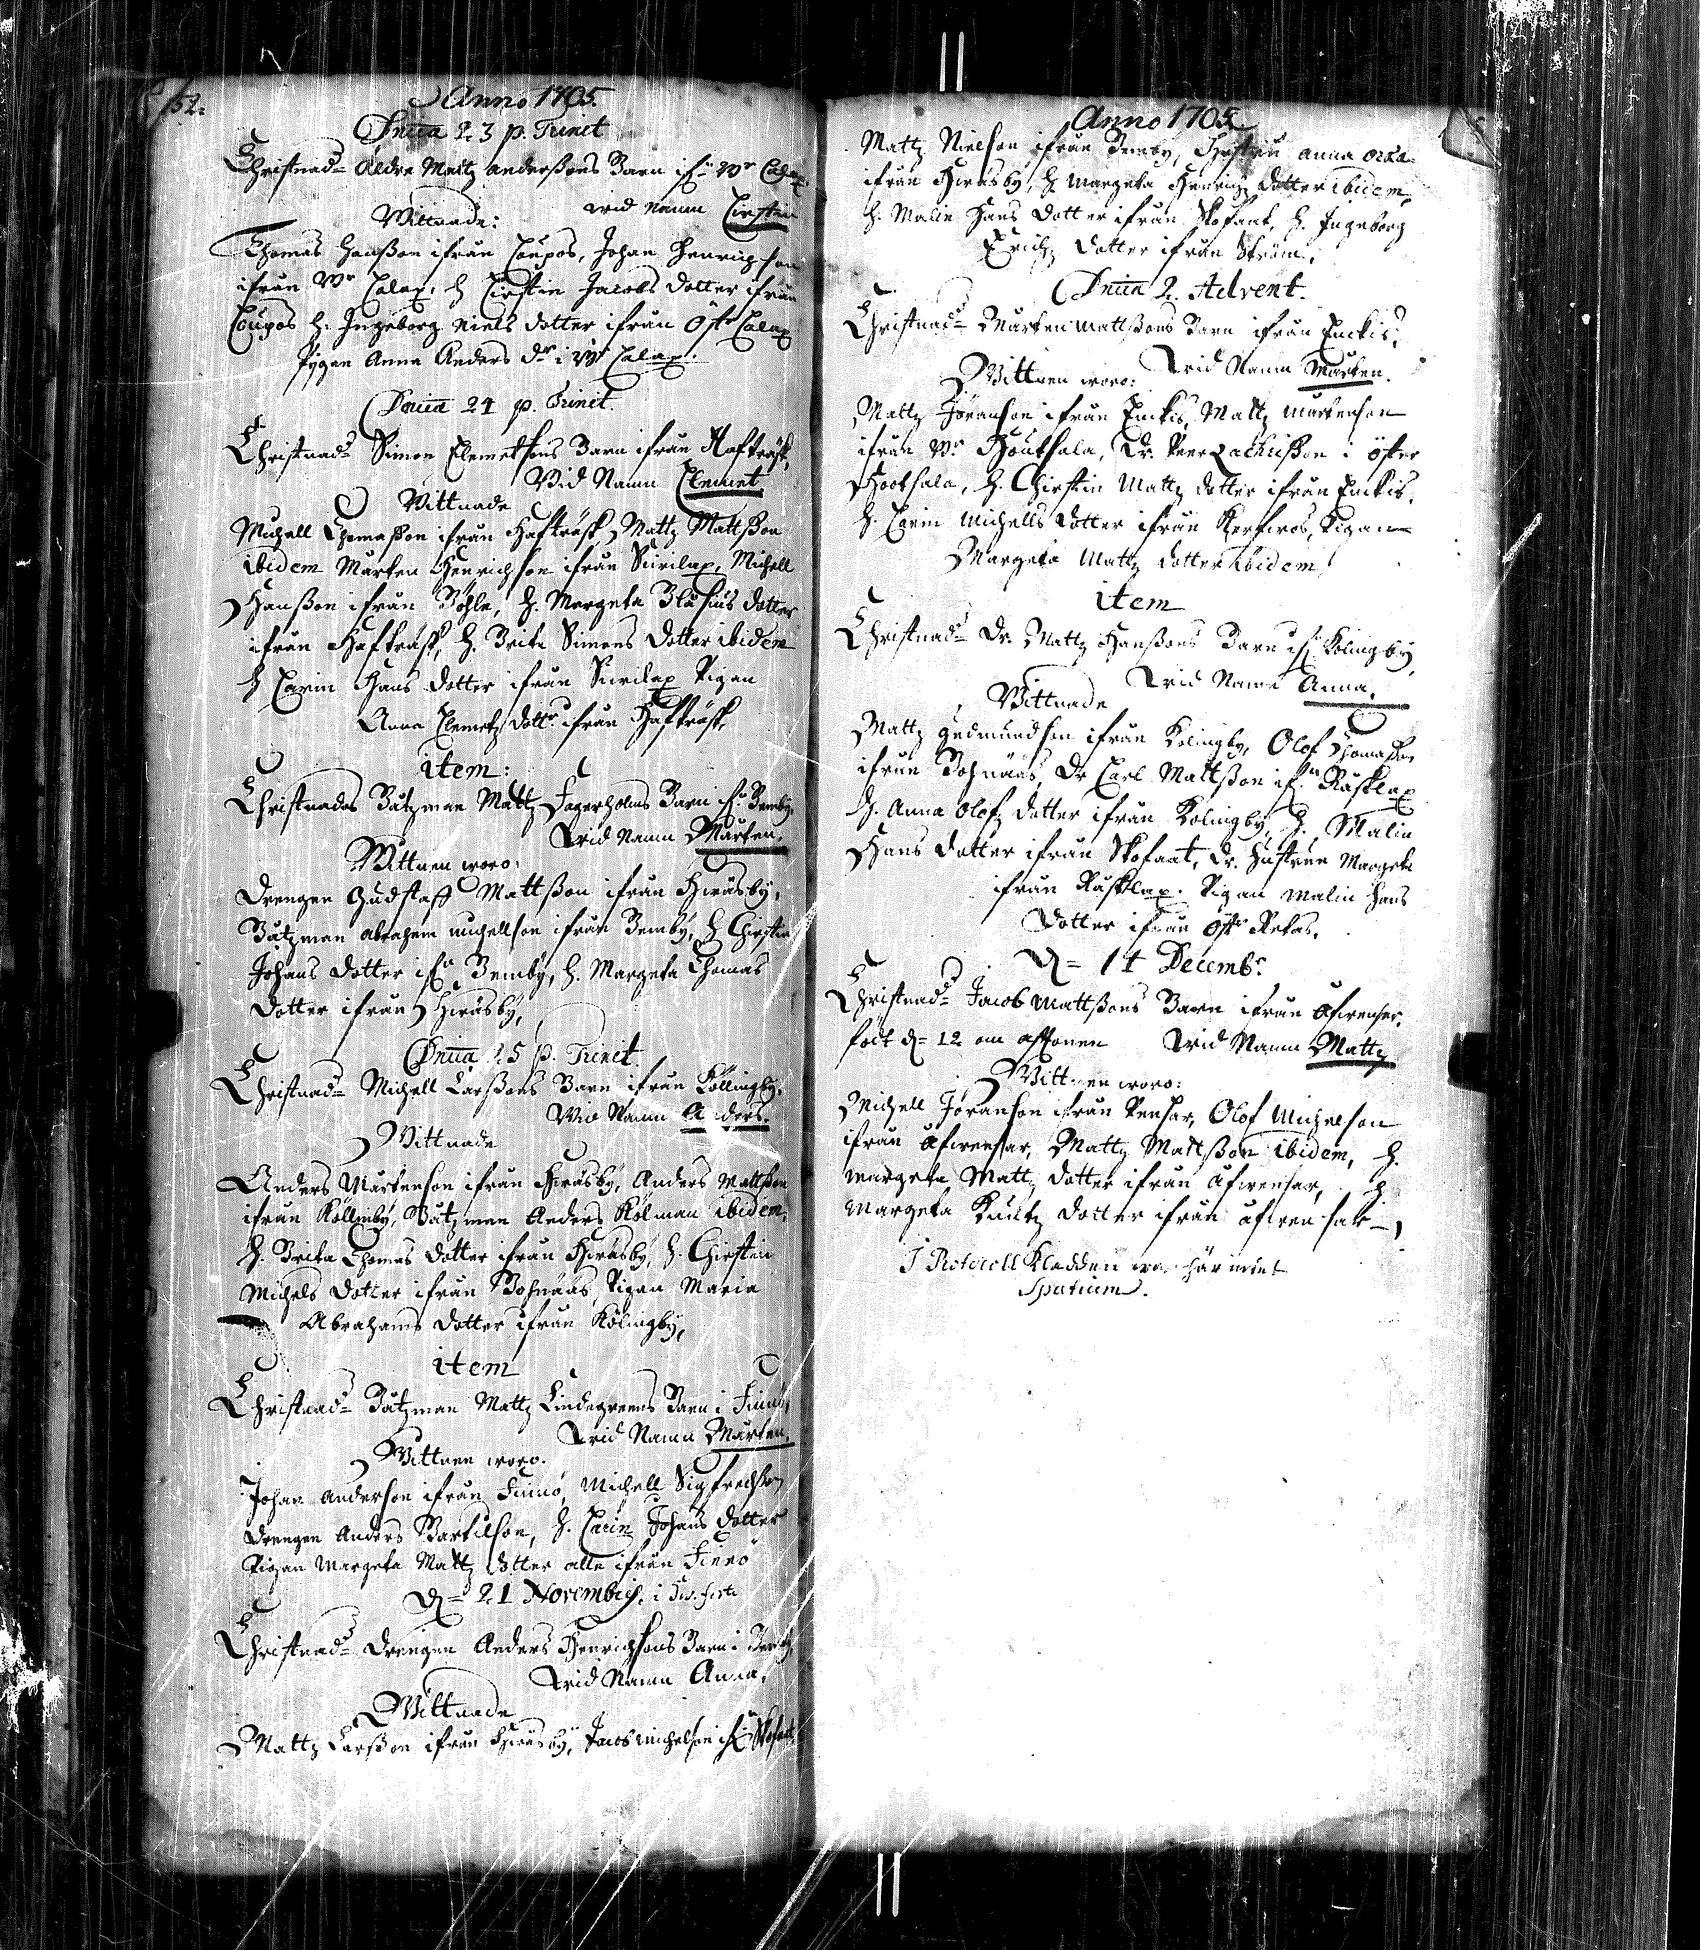 52.
Anno 1705.
Dnica 23 p. Trinit
Christnad= Äldre Mattz Anderßons Barn if: Wr Lalax.
wid namn Kirstin
Wittnade:
Thomas Hanßon ifrån Coupos, Johan Henrichson
ifrån Wr Lalax, H Kirstin Jacobs dotter ifrån
Coupos H. Ingeborg Niels dotter ifrån Östr Lalax
Pigan Anna Anders dr i Wr Lalax.
Dnica 24 p. Trinit.
Christnad= Simon Clemetsons Barn ifrån Hafträsk,
Wid Namn Clemet
Wittnade
Michell Thomaßon ifrån Hafträsk, Mattz Mattßon
ibidem Mårten Henrichson ifrån Sirilax, Michell
Hanßon ifrån Böhle, H. Margeta Blasius dotter
ifrån Hafträsk, H. Brita Simons dotter ibidem
H Carin Hans dotter ifrån Sirilax Pigan
Anna Clemetz dottr ifrån Hafträsk
item:
Christnades Båtzman Mattz Fagerholms Barn if: Bemby.
Wid namn Mårten.
Wittnen woro:
Drengen Gudstaff Mattßon ifrån Hiräsby,
Båtzman Abraham Michellson ifrån Bemby, H Chirstin
Johans dotter ifn Bemby, H. Margeta Thomas
dotter ifrån Hiräsby,
Dnica 25 p. Trinit
Christnad= Michell Larßons Barn ifrån Köllingby.
Wid Namn Anders.
Wittnade
Anders Mårtenson ifrån Hiräsby, Anders Mattßon
ifrån Köllinby, Båtzman Anders Kölman ibidem,
H. Brita Thomas dotter ifrån Hiräsby, H. Chirstin
Michels dotter ifrån Bohnääs Pigan Maria
Abrahams dotter ifrån Kölingby,
item
Christnad= Båtzman Mattz Lindegreens Barn i Finnö,
Wid Namn Mårten.
Wittnen woro.
Johan Anderson ifrån Finnö, Michell Sigfredßon
Drengen Anders Bartilson, H. Carin Johans dotter
Pigan Margeta Mattz dotter alla ifrån Finnö
D= 21 Novembris, i
Christnad= Drengen Anders Henrichsons Barn i Bemby,
Wid Namn Anna,
Wittnade
Mattz Larßon ifrån Hiräsby, Jacob Michelson if: Skofaat
Anno 1705
Mattz Nielson ifrån Bemby, Hustru Anna
ifrån Hiräsby, H Margeta Henrichz dotter ibidem,
H. Malin Hans dotter ifrån Skofaat, H. Ingeborg
Erichz dotter ifrån Ström.
Dnica 2. Advent.
Christnad= Mårten Mattßons Barn ifrån Enkis,
Wid Namn Mårten.
Wittnen woro:
Mattz Jöranson ifrån Enkis, Mattz Mårtenson
ifrån Wr Houtsala, Dr. Peer Zachrißon i öster
Hootsala, H. Chirstin Mattz dotter ifrån Enkis.
H. Carin Michells dotter ifrån Kerkwos, Pigan
Margeta Mattz dotter ibidem
item
Christnad= Dr. Mattz Hanßons Barn if: Kölingby
Wid Namn Anna.
Wittnade
Mattz Gudmundson ifrån Kölingby, Olof Thomaßon
ifrån Bohnääs, Dr Carl Mattßon ifn Räsklax
H. Anna Olofz dotter ifrån Kölingby, H. Malin
Hans dotter ifrån Skofaat, Dr. Hustrun Margeta
ifrån Räsklax. Pigan Malin Hans
dotter ifrån Östr Retas.
D= 14 Decembr.
Christnad= Jacob Mattßons Barn ifrån Åfwensar,
föd d= 12 om afftonen Wid Namn Mattz
Wittnen woro:
Michell Jöranson ifrån Pensar, Olof Michelson
ifrån Åfwensar, Mattz Mattßon ibidem, H.
Margeta Mattz dotter ifrån Åfwensar, H
Margeta Knutz dotter ifrån åfwensar,
I Protocoll Kladden war här intet
Spatium.